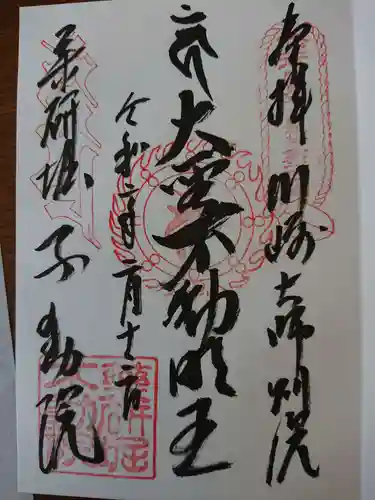 奉拝 川崎大師別院
大聖不動明王
令和二年二月十二日
薬研堀不動院